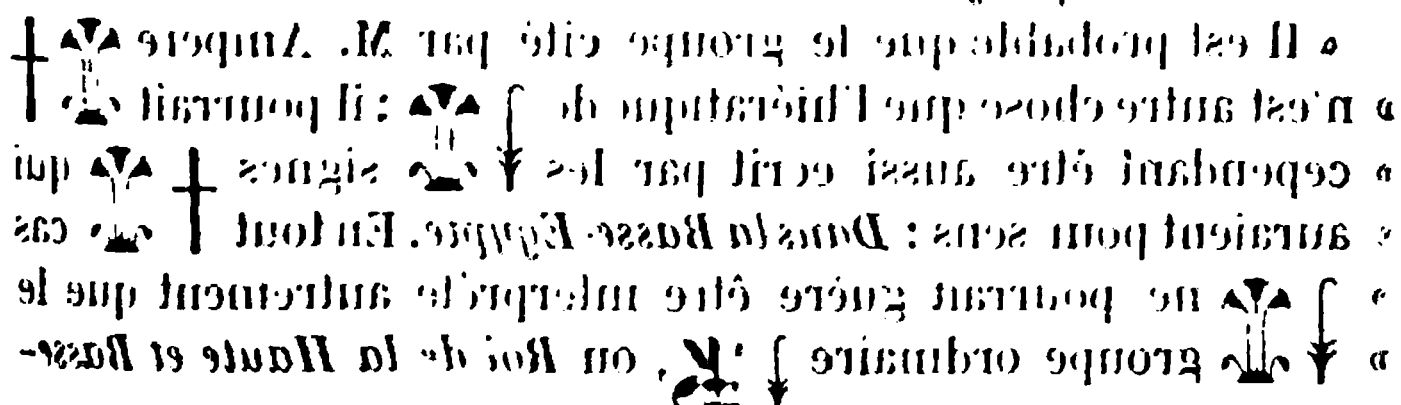 » Il est probable que le groupe cité par M. Ampère
» n'est autre chose que l'hiératique de : il pourrait
» cependant être aussi écrit par les signes qui
» auraient pour sens : Dans la Basse-Egypte. En tout cas
» ne pourrait guère être interprété autrement que le
» groupe ordinaire , ou Roi de la Haute et Basse-